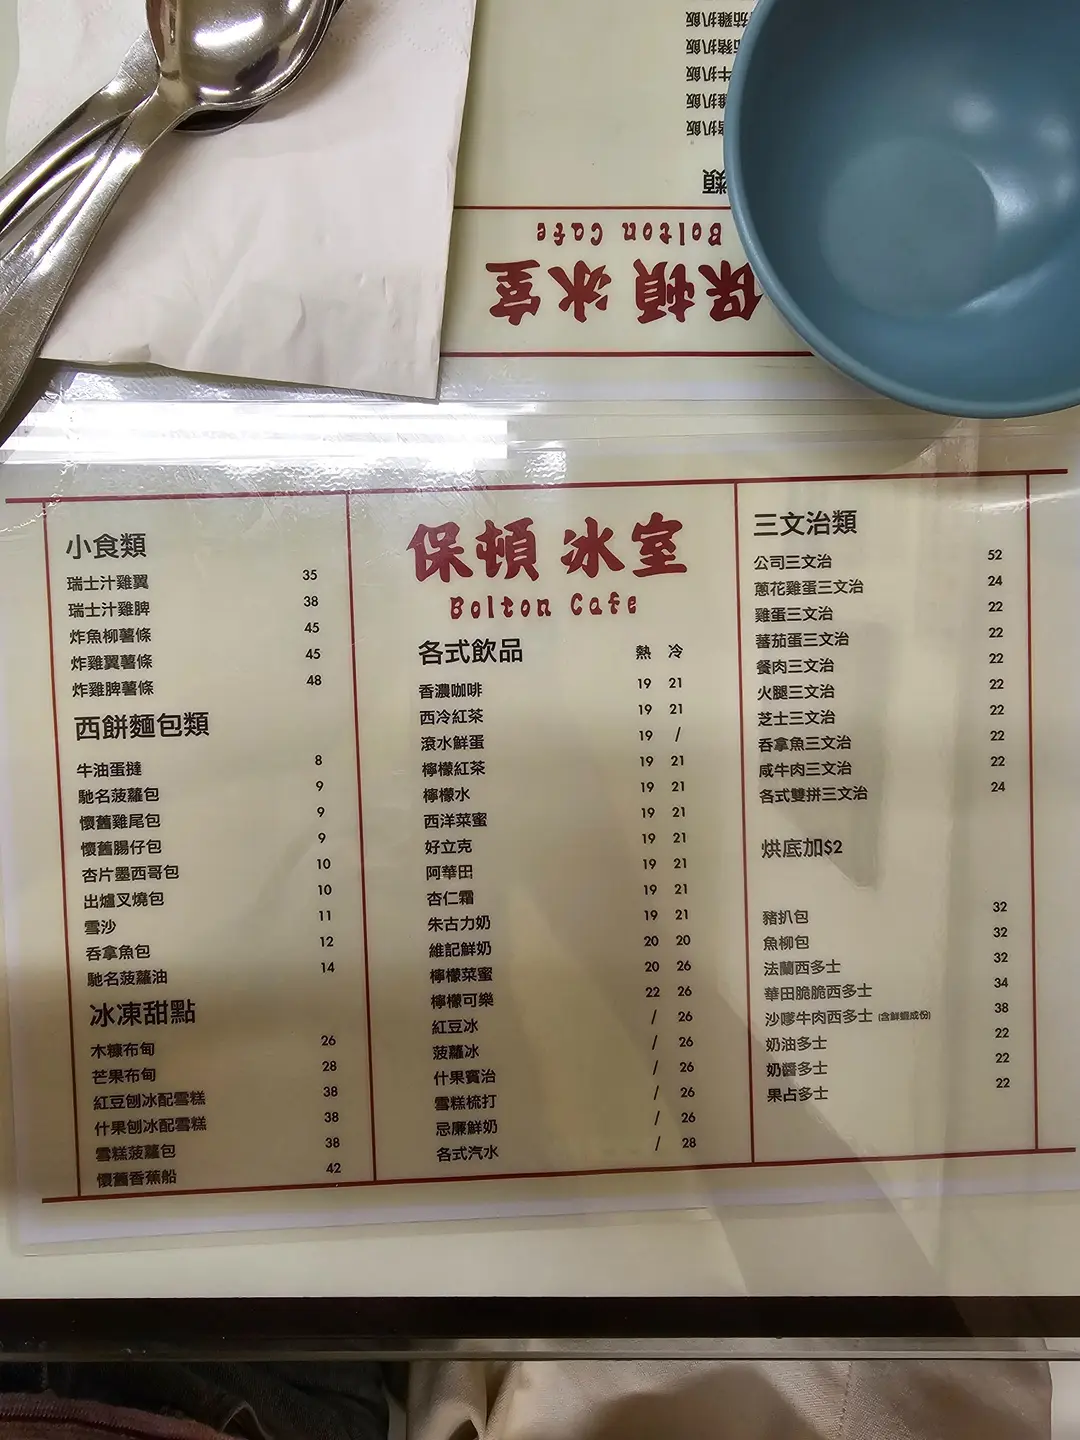 扒飯
扒飯
扒飯
扒飯
扒飯
類
Bolton Cafe
保頓冰室
小食類
瑞士汁雞翼 35
瑞士汁雞脾 38
炸魚柳薯條 45
炸雞翼薯條 45
炸雞脾薯條 48
西餅麵包類
牛油蛋撻 8
馳名菠蘿包 9
懷舊雞尾包 9
懷舊腸仔包 9
杏片墨西哥包 10
出爐叉燒包 10
雪沙 11
吞拿魚包 12
馳名菠蘿油 14
冰凍甜點
木糠布甸 26
芒果布甸 28
紅豆刨冰配雪糕 38
什果刨冰配雪糕 38
雪糕菠蘿包 38
懷舊香蕉船 42
保頓冰室
Bolton Cafe
各式飲品 熱 冷
香濃咖啡 19 21
西冷紅茶 19 21
滾水鮮蛋 19 /
檸檬紅茶 19 21
檸檬水 19 21
西洋菜蜜 19 21
好立克 19 21
阿華田 19 21
杏仁霜 19 21
朱古力奶 19 21
維記鮮奶 20 20
檸檬菜蜜 20 26
檸檬可樂 22 26
紅豆冰 / 26
菠蘿冰 / 26
什果賓治 / 26
雪糕梳打 / 26
忌廉鮮奶 / 26
各式汽水 / 28
三文治類
公司三文治 52
蔥花雞蛋三文治 24
雞蛋三文治 22
蕃茄蛋三文治 22
餐肉三文治 22
火腿三文治 22
芝士三文治 22
吞拿魚三文治 22
咸牛肉三文治 22
各式雙拼三文治 24
烘底加$2
豬扒包 32
魚柳包 32
法蘭西多士 32
華田脆脆西多士 34
沙嗲牛肉西多士 (含鮮蝦成份) 38
奶油多士 22
奶醬多士 22
果占多士 22